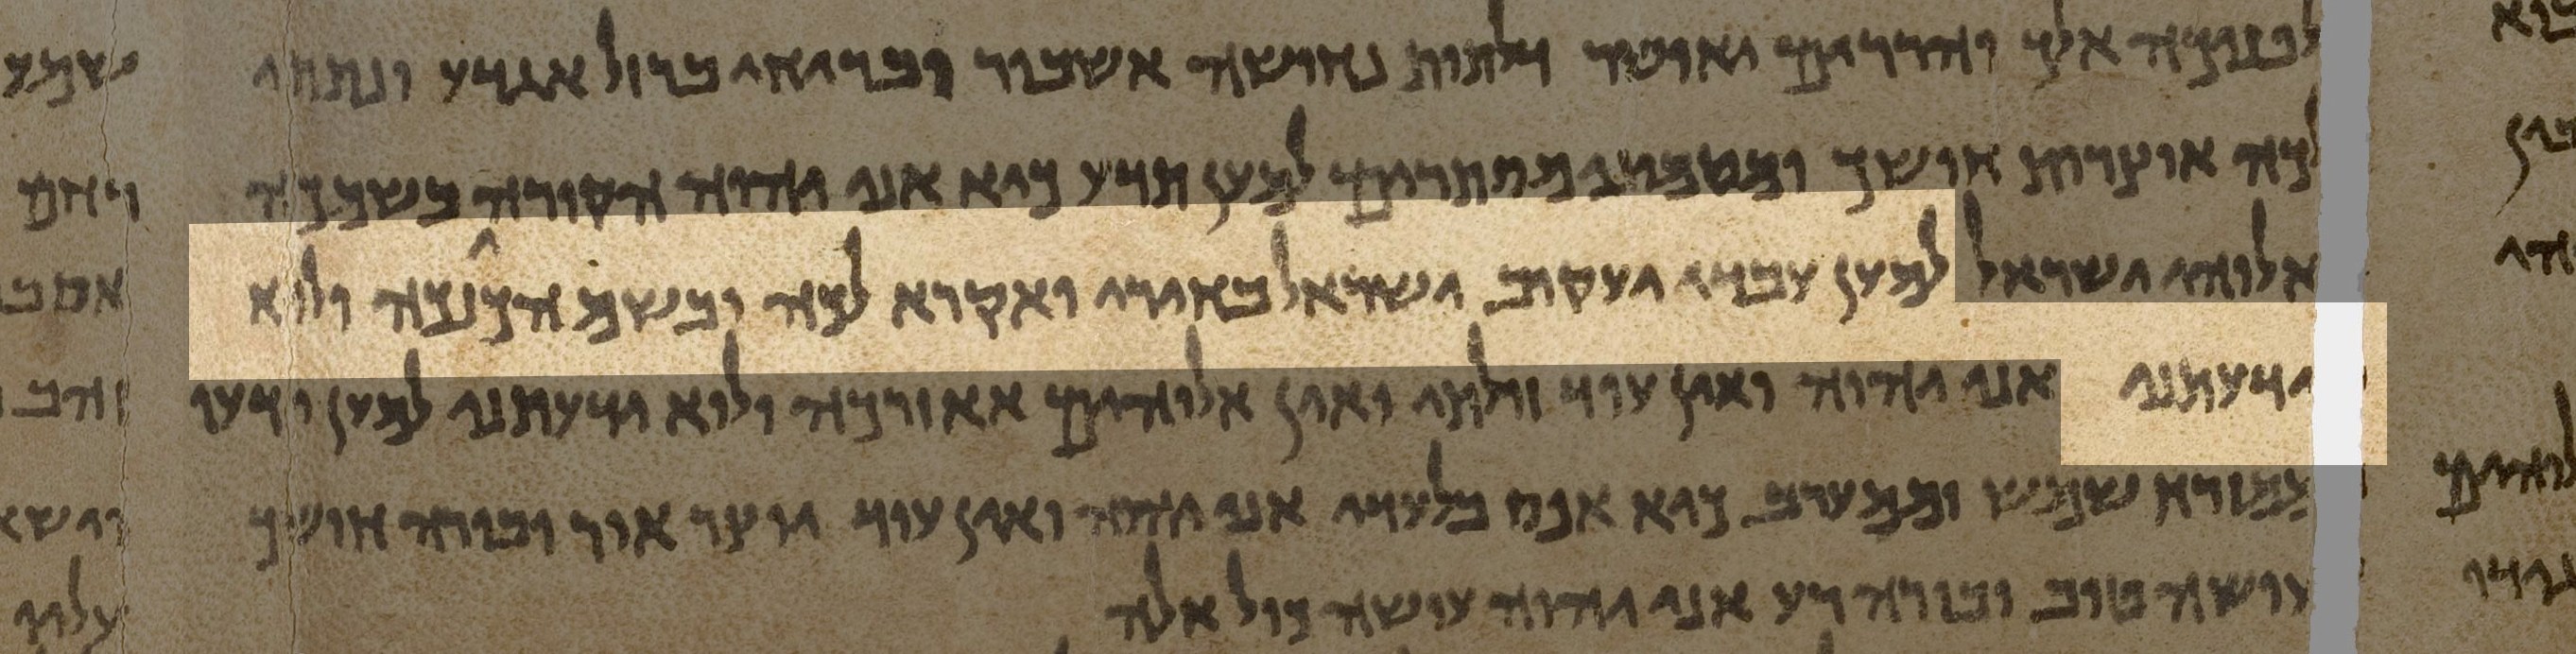 לפניכה אלך והררים יאושר דלתות נחושה אשבור ובריחי ברזל אגדע ונתתי
לכה אוצרות חושך ומטמוני מסתרים למען תדע כיא אני יהוה הקורה בשמכה
אלוהי ישראל למען עבדי יעקוב ישראל בחירי ואקרא לכה ובשם הכינכה ולוא
ידעתני אני יהוה ואין עוד וזולתי ואין אלוהים אאזורכה ולוא ידעתני למען ידעו
ממזרח שמש וממערב כיא אפס בלעדי אני יהוה ואין עוד יוצר אור ובורה חושך
עושה טוב ובורה רע אני יהוה עושה כול אלה